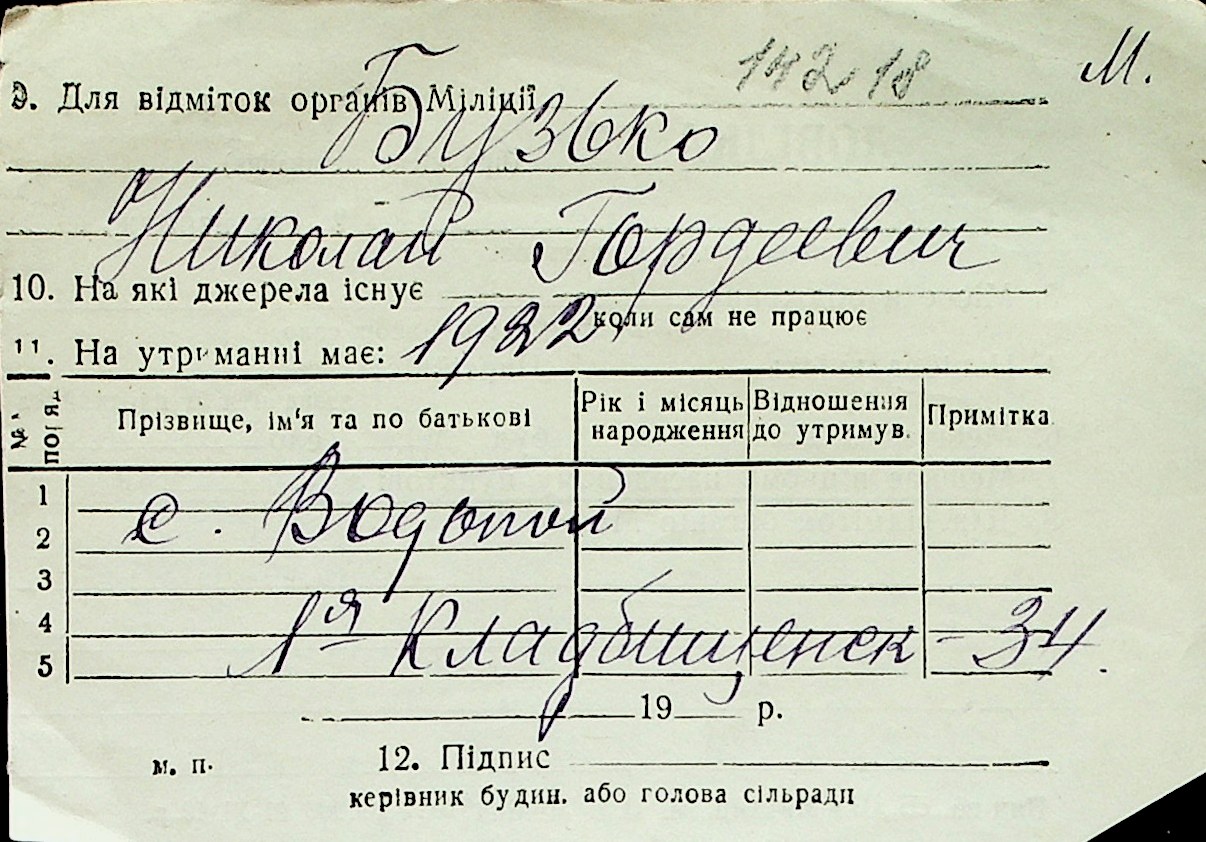 142 18 М.
9. Для відміток органів Міліції
Бузько
Николай Гордеевич
10. На які джерела існує
коли сам не працює
1922
11. На утриманні має:
№№ по пор. Прізвище, ім'я та по батькові Рік і місяць народження Відношення до утримув. Примітка
1
с. Водопой
2
3
4
1я Кладбищенск - 34.
5
19 р.
м. п. 12. Підпис
керівник будин. або голова сільради